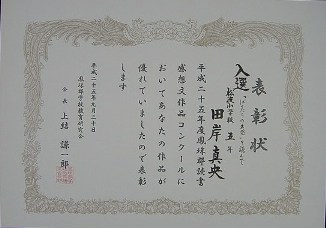 表彰状
入選
小学校 五年
田岸真央
平成二十五年度鳳珠郡読書
感想文作品コンクールに
おいてあなたの作品が
優れていましたので表彰
します
平成二十五年九月二十日
鳳珠郡学校教育研究会
会長 上結 謙一郎